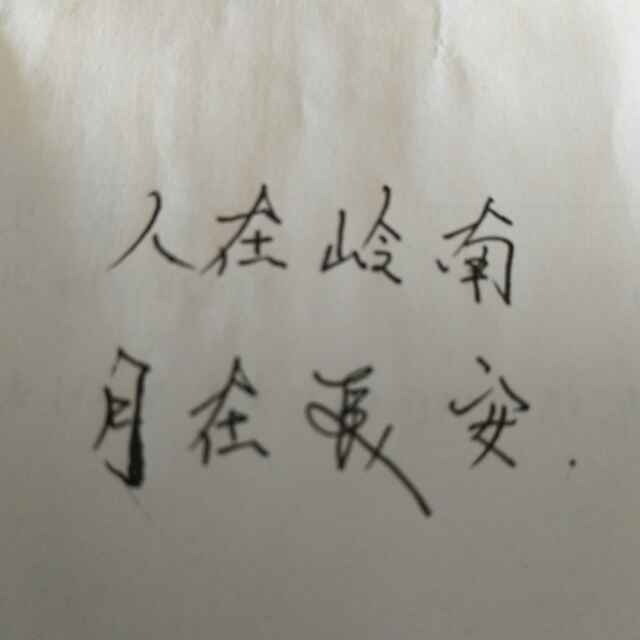 人在岭南
月在長安.